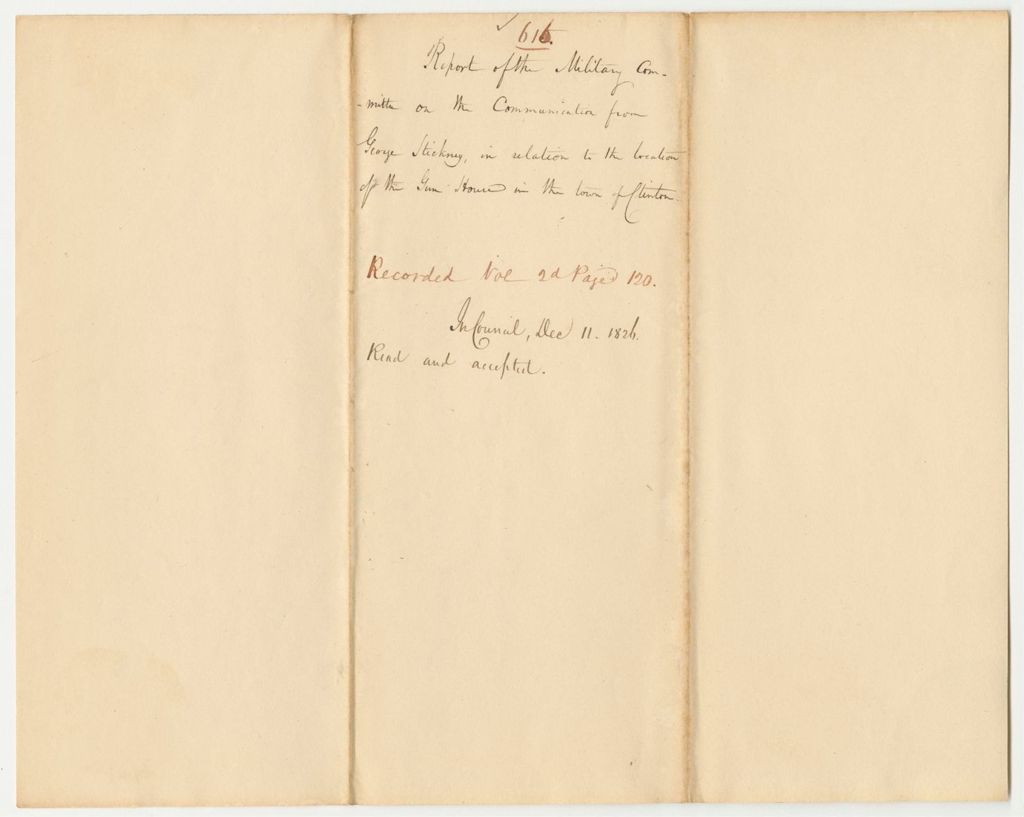 616.
Report of the Military Com-
-mittee on the Communication from
George Stickney, in relation to the location
of the Gun House in the town of Clinton.
Recorded Vol 2d Page 120.
In Council, Dec 11. 1826.
Read and accepted.